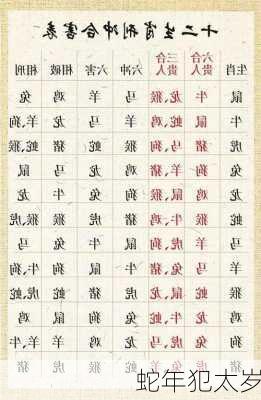 十二生肖刑冲合害表
生肖 六合贵人 三合贵人 六冲 六害 相破 相刑
鼠 牛 龙、猴 马 羊 鸡 兔
牛 鼠 蛇、鸡 羊 马 龙 羊、狗
虎 猪 马、狗 猴 蛇 猪 蛇、猴
兔 狗 羊、猪 鸡 龙 马 鼠
龙 鸡 鼠、猴 狗 兔 牛 龙
蛇 猴 牛、鸡 猪 虎 猴 虎、猴
马 羊 虎、狗 鼠 牛 兔 马
羊 马 兔、猪 牛 鼠 狗 狗、牛
猴 蛇 鼠、龙 虎 猪 蛇 蛇、虎
鸡 龙 牛、蛇 兔 狗 鼠 鸡
狗 兔 虎、马 龙 鸡 羊 牛、羊
猪 虎
蛇年犯太岁